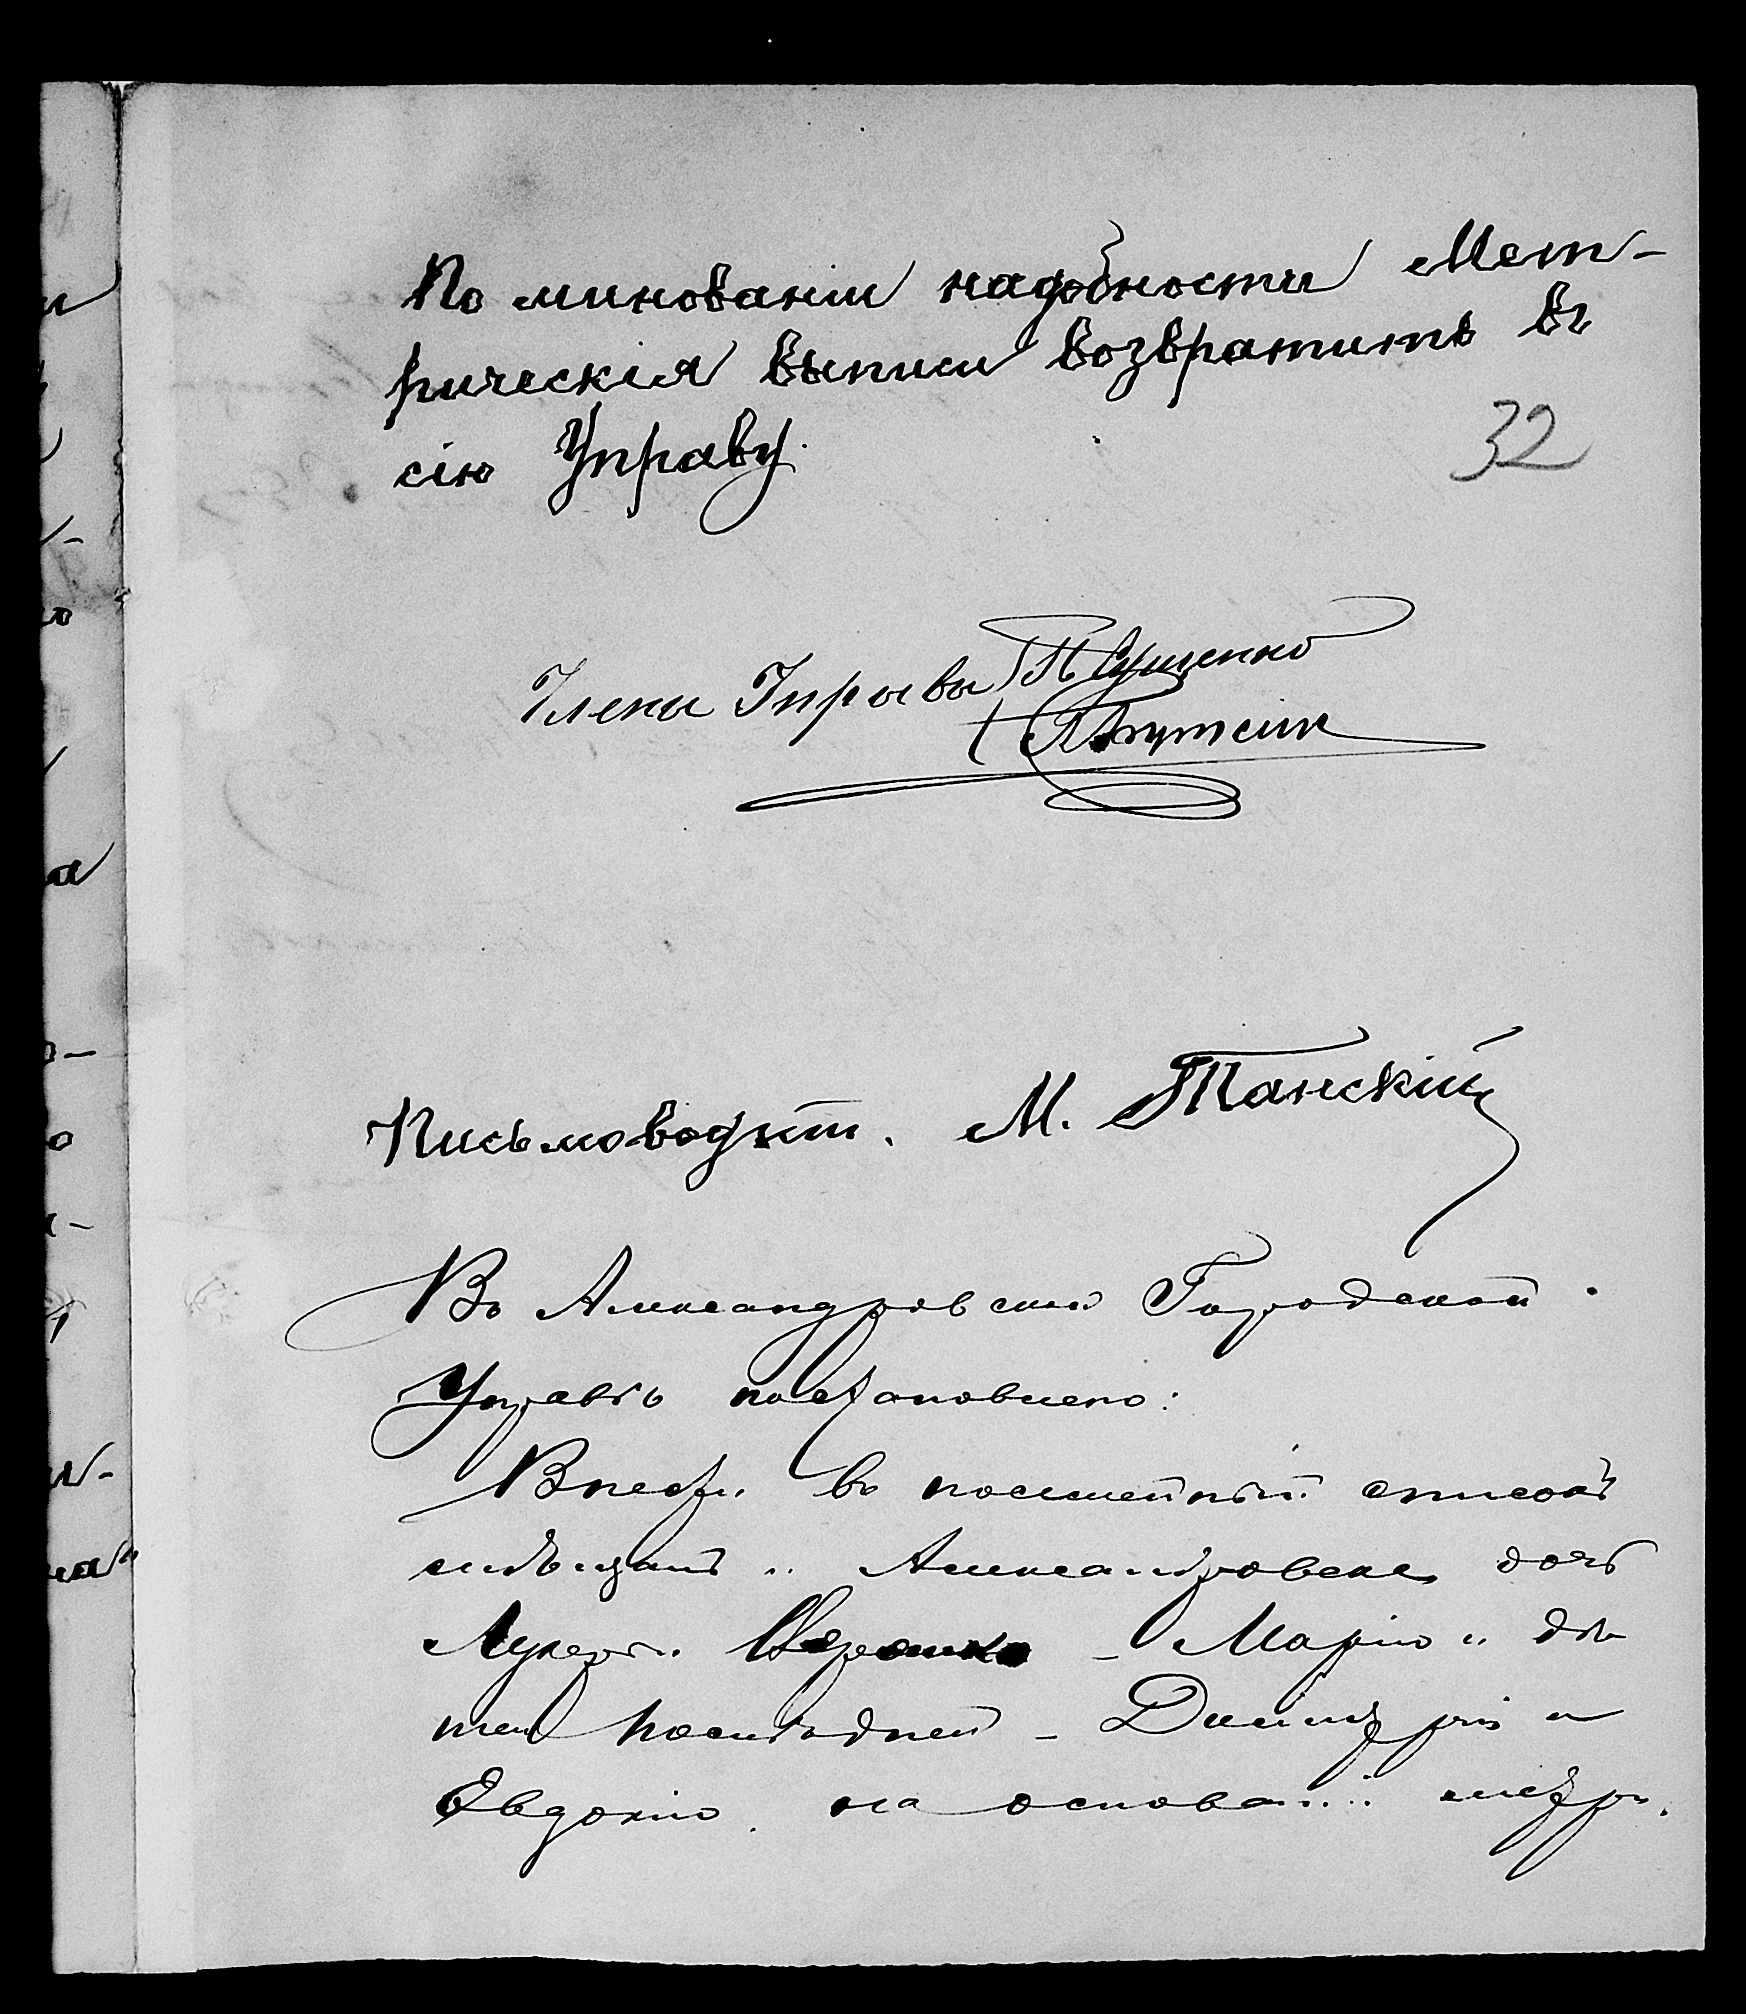 По минованіи надобности Мет-
рическія выписи возвратить въ
сію Управу.
32
Члены Управы
Письмоводит. М. Танскій
Въ Александровской Городской
Управѣ постановлено:
Внести въ посемейный списокъ
мѣщанъ г. Александровска дочь
Лукерьи – Марію и дѣ
тей послѣдней – Димитрія и
Евдокію на основаніи метри